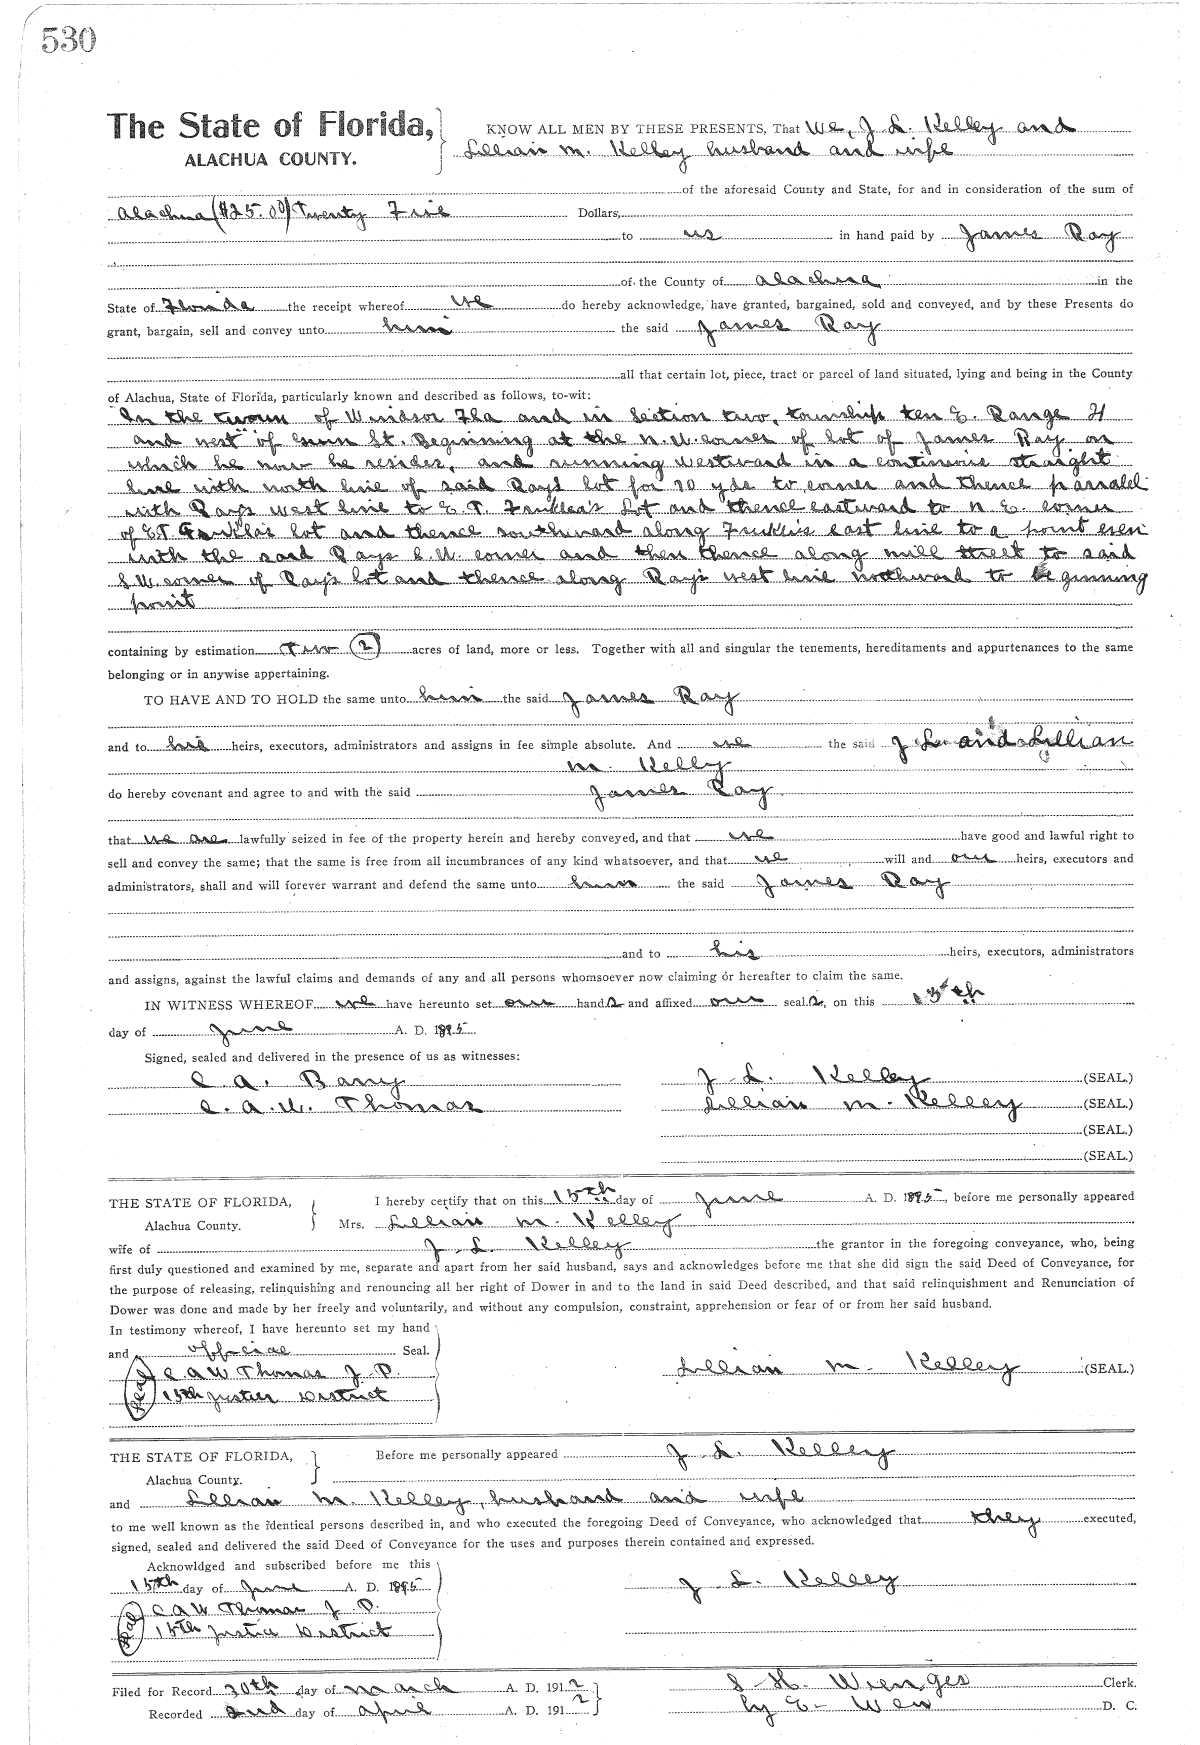 530
The State of Florida, KNOW ALL MEN BY THESE PRESENTS, That We, J. L. Kelley and
ALACHUA COUNTY. Lillian M. Kelley husband and wife
of the aforesaid County and State, for and in consideration of the sum of
Alachua ($25.00) Twenty Five Dollars,
to us in hand paid by James Ray
of the County of Alachua in the
State of Florida the receipt whereof we do hereby acknowledge, have granted, bargained, sold and conveyed, and by these Presents do
grant, bargain, sell and convey unto him the said James Ray
all that certain lot, piece, tract or parcel of land situated, lying and being in the County
of Alachua, State of Florida, particularly known and described as follows, to-wit:
In the town of Windsor Fla and in Section two, township ten E. Range
and west of St. Beginning at the N.W. corner of lot of James Ray on
which he now he resides, and running westward in a straight
line with north line of said Ray's lot for 70 yds to corner and thence
with Rays west line to E. T. Lot and thence eastward to N. E. corner
of E.T. lot and thence southward along east line to a point even
with the said Rays S.W. corner and then thence along mill street to said
S.W. corner of Ray's lot and thence along Ray's west line northward to beginning
point
containing by estimation two (2) acres of land, more or less. Together with all and singular the tenements, hereditaments and appurtenances to the same
belonging or in anywise appertaining.
TO HAVE AND TO HOLD the same unto him the said James Ray
and to his heirs, executors, administrators and assigns in fee simple absolute. And we the said J L and Lillian
M. Kelly
do hereby covenant and agree to and with the said James Ray
that we are lawfully seized in fee of the property herein and hereby conveyed, and that we have good and lawful right to
sell and convey the same; that the same is free from all incumbrances of any kind whatsoever, and that we will and our heirs, executors and
administrators, shall and will forever warrant and defend the same unto him the said James Ray
and to his heirs, executors, administrators
and assigns, against the lawful claims and demands of any and all persons whomsoever now claiming or hereafter to claim the same.
IN WITNESS WHEREOF we have hereunto set our hands and affixed our seals, on this 15th
day of June A. D. 1895
Signed, sealed and delivered in the presence of us as witnesses:
C. A. Barry J. L. Kelley (SEAL.)
C. A. W. Thomas Lillian M. Kelley (SEAL.)
(SEAL.)
(SEAL.)
THE STATE OF FLORIDA, I hereby certify that on this 15th day of June A. D. 1895, before me personally appeared
Alachua County. Mrs. Lillian M. Kelley
wife of J. L. Kelley the grantor in the foregoing conveyance, who, being
first duly questioned and examined by me, separate and apart from her said husband, says and acknowledges before me that she did sign the said Deed of Conveyance, for
the purpose of releasing, relinquishing and renouncing all her right of Dower in and to the land in said Deed described, and that said relinquishment and Renunciation of
Dower was done and made by her freely and voluntarily, and without any compulsion, constraint, apprehension or fear of or from her said husband.
In testimony whereof, I have hereunto set my hand
and official Seal.
Seal C. A W Thomas J. P. Lillian M. Kelley (SEAL.)
15th Justice District
THE STATE OF FLORIDA, Before me personally appeared J. L. Kelley
Alachua County.
and Lillian M. Kelley, husband and wife
to me well known as the identical persons described in, and who executed the foregoing Deed of Conveyance, who acknowledged that they executed,
signed, sealed and delivered the said Deed of Conveyance for the uses and purposes therein contained and expressed.
Acknowldged and subscribed before me this
15th day of June A. D. 1895 J. L. Kelley
Seal C A W Thomas J. P.
15th Justice District
Filed for Record 30th day of March A. D. 1912 S. H. Wienges Clerk.
Recorded 2nd day of April A. D. 1912 by E. D. C.